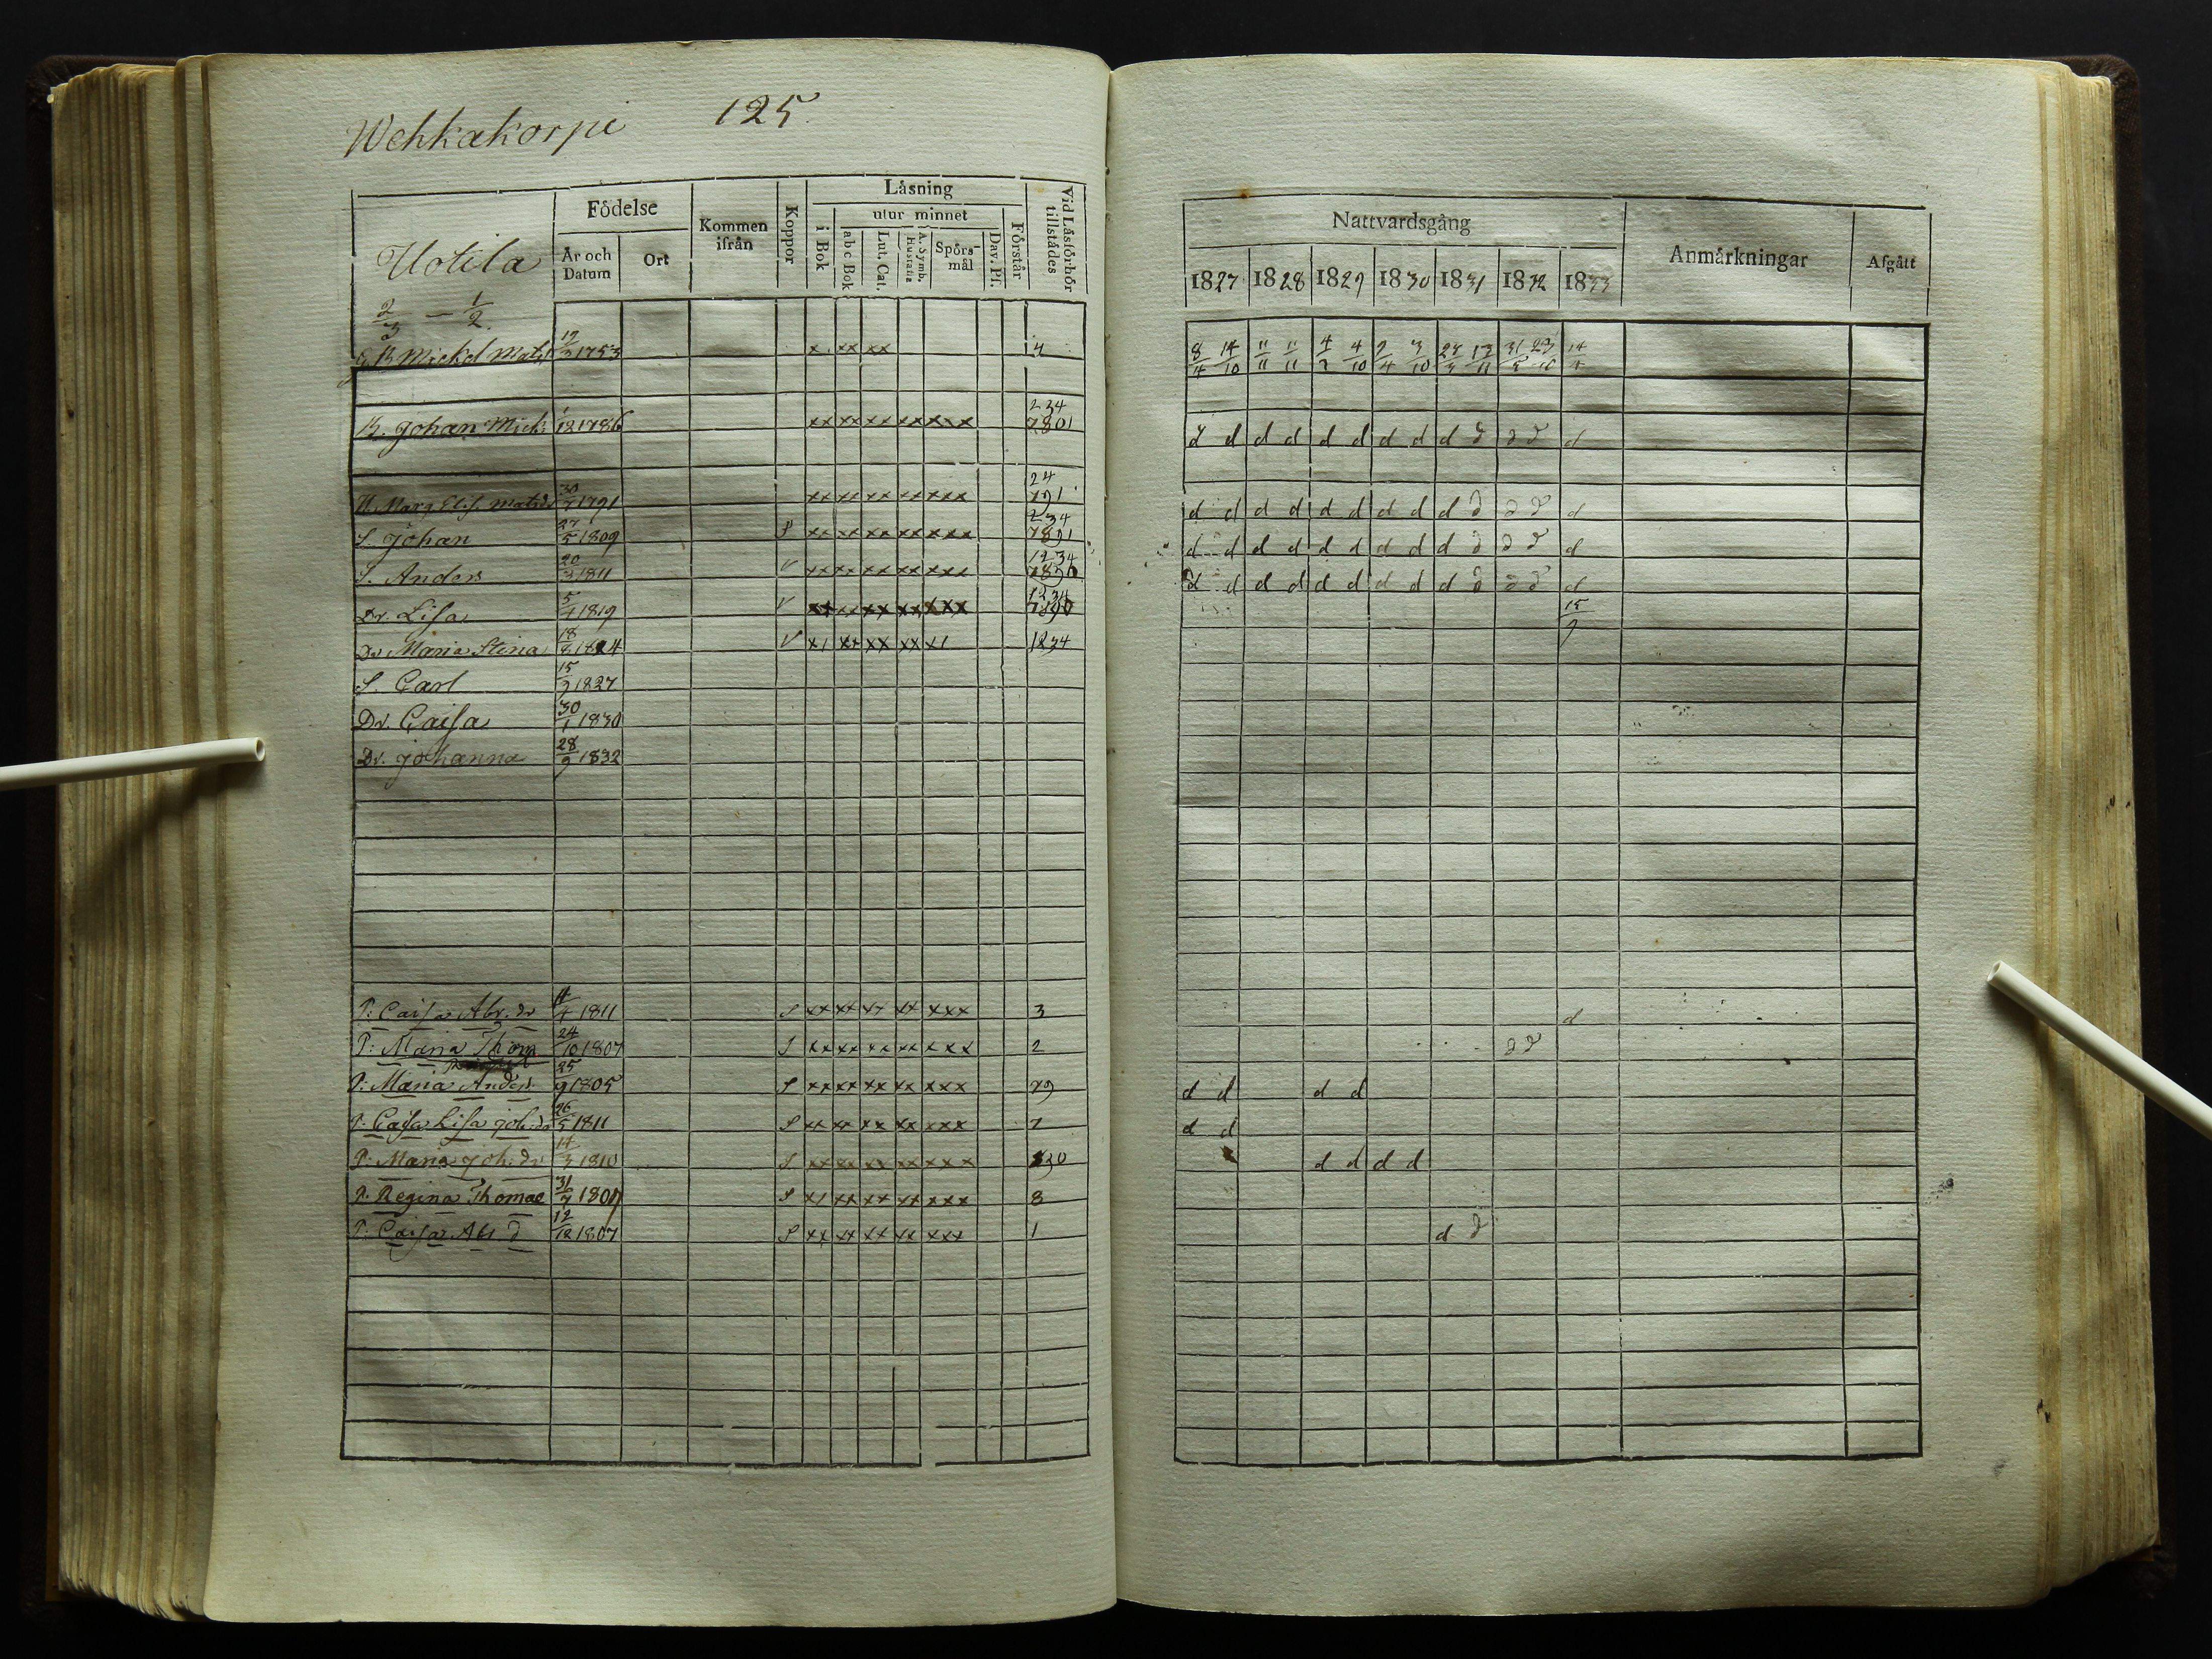 Wehkakorpi 125.
Uotila
Födelse
År och Datum
Ort
Kommen ifrån
Koppor
Läsning
i Bok
utur minnet
abc Bok
Lut. Cat.
A. Symb. Hustafla
Spörsmål
Dav. Ps.
Förstår
Vid Läsförhör tillstådes
2/3 — 1/2
Mickel Mats 1753 x xx xx 4
B. Johan Mick: 1/12 1786 xx xx xx xx xxx 234 7801
H. Marg. Elis. Matsdr 1791 xx xx xx xx xxx 24 791
S. Johan 27/5 1809 S xx xx xx xx xxx 234 7891
S. Anders 20/3 1811 V xx xx xx xx xxx 1234
Dr. Lisa 5/4 1819 V xx xx xx xx xxx 1234 7890
Dr Maria Stina 18/8 1824 V x1 xx xx xx x1 1234
S. Carl 15/9 1827
Dr. Caisa 30/1 1830
Dr. Johanna 28/9 1832
P: Caisa Abr. dr 1811 S xx xx xx xx xxx 3
P: Maria Thom 24/10 1807 S xx xx xx xx xxx 2
P: Maria Anders 25/9 1805 S xx xx xx xx xxx 79
P: Caisa Lisa Joh.dr 26/5 1811 S xx xx xx xx xxx 7
P: Maria Joh. dr 14/3 1810 S xx xx xx xx xxx
P. Regina Thomae 31/7 S x1 xx xx xx xxx 8
P: Caisa Abr d 12/12 1807 S xx xx xx xx xxx 1
Nattvardsgång
Anmärkningar
Afgått
1827 1828 1829 1830 1831 1832 1833
8/4 14/10 11/11 11/11 4/10 3/10 13/11 31/5 23/10 14/4
d d d d d d d d d d d d d
d d d d d d d d d d d d d
d d d d d d d d d d d d d
d d d d d d d d d d d d d
15/9
d
d d
d d d d
d d
d d d d
d d